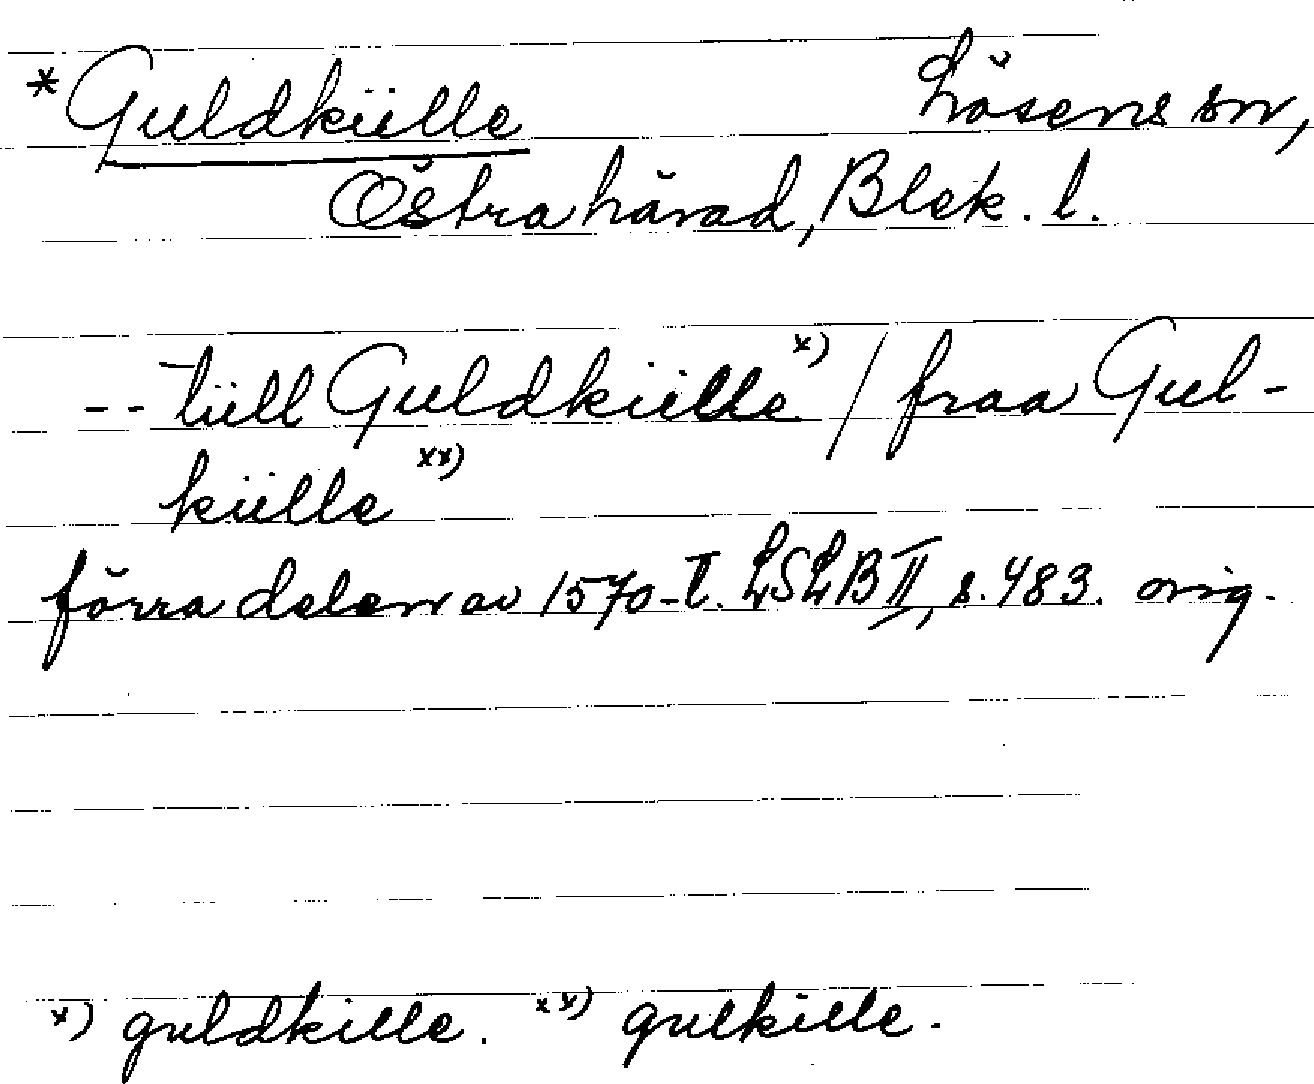 * Guldkiille Lösens sn,
Östra härad, Blek. l.
-- tiill Guldkiille x) / fraa Gul-
kiille xx)
förra delen av 1570-t. LSLB II, s. 483. orig.
x) guldkille. xx) gulkille.